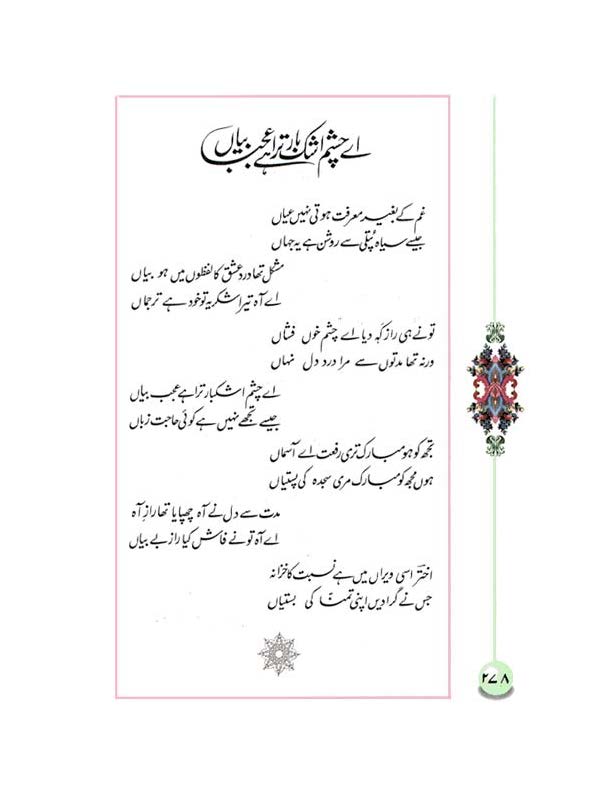 اے چشم اشک بار ترا ہے عجب بیاں
غم کے بغیر معرفت ہوتی نہیں عیاں
جیسے سیاہ پُتلی سے روشن ہے یہ جہاں
مشکل تھا دردِ عشق کا لفظوں میں ہو بیاں
اے آہ تیرا شکریہ تو خود ہے ترجماں
تو نے ہی راز کہہ دیا اے چشم خوں فشاں
ورنہ تھا مدتوں سے مرا درد دل نہاں
اے چشم اشکبار ترا ہے عجب بیاں
جیسے تجھے نہیں ہے کوئی حاجت زباں
تجھ کو ہو مبارک تری رفعت اے آسماں
ہوں مجھ کو مبارک مری سجدہ کی پستیاں
مدت سے دل نے آہ چھپایا تھا رازِ آہ
اے آہ تو نے فاش کیا راز بے بیاں
اختر اسی ویراں میں ہے نسبت کا خزانہ
جس نے گرا دیں اپنی تمنّا کی بستیاں
۲۷۸